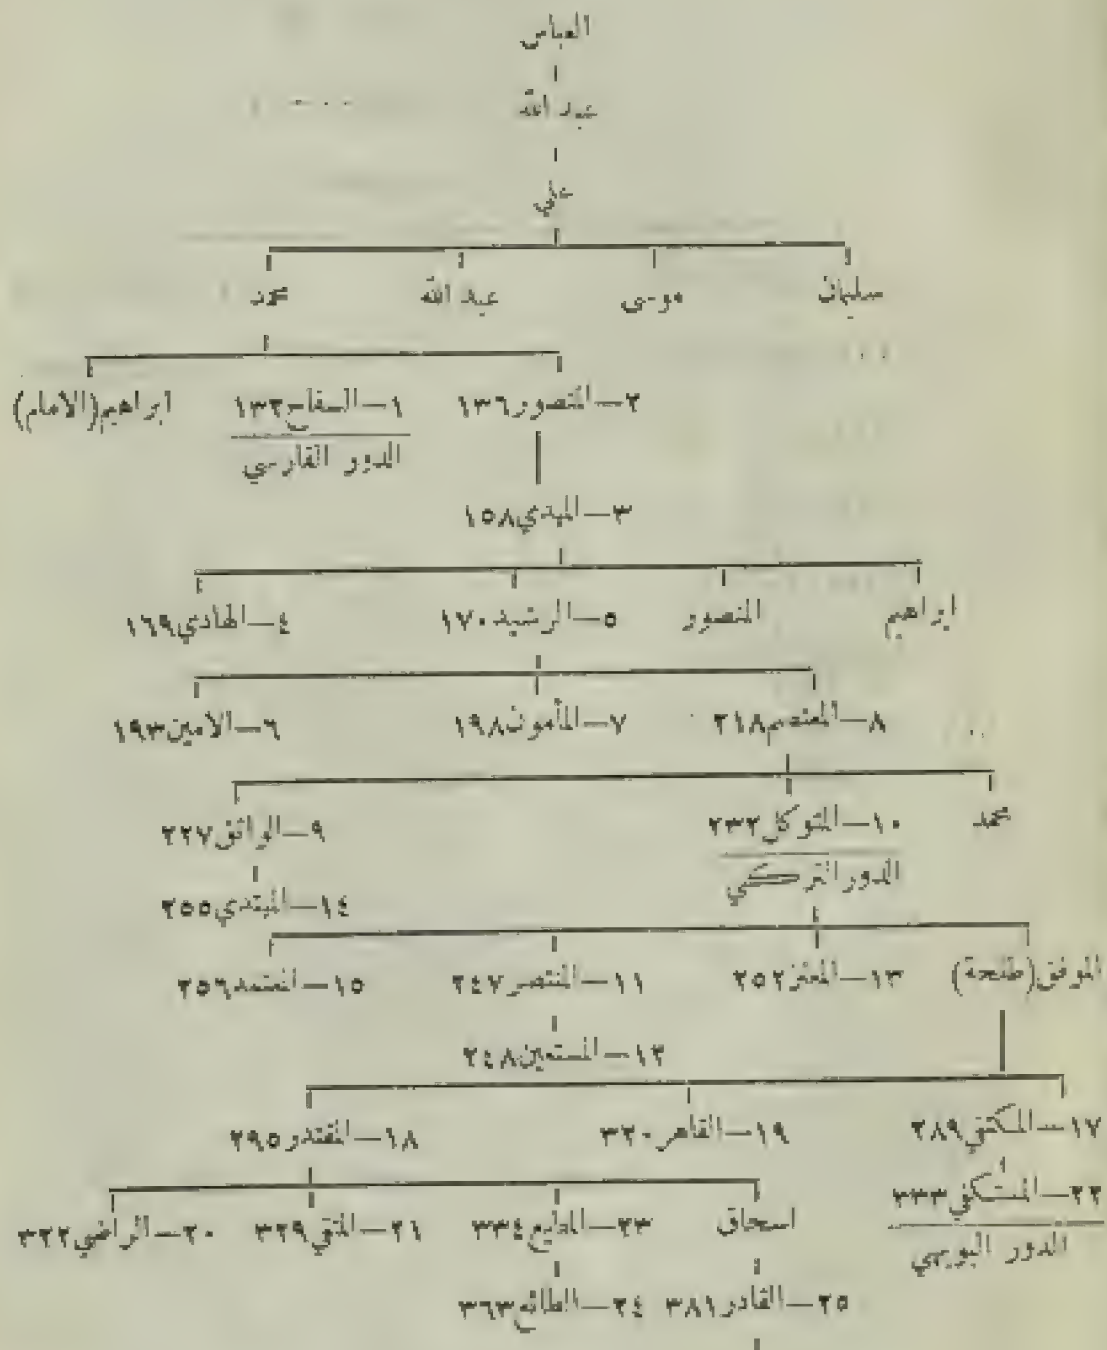 العباس
عبد الله
علي
سليمان موسى عبد الله محمد
٢—المنصور١٣٦ ١—السفاح١٣٢ ابراهيم(الامام)
الدور الفارسي
٣—المهدي١٥٨
ابراهيم المنصور ٥—الرشيد١٧٠ ٤—الهادي١٦٩
٨—المعتصم٢١٨ ٧—المأمون١٩٨ ٦—الامين١٩٣
محمد ١٠—المتوكل٢٣٢ ٩—الواثق٢٢٧
الدور التركي
١٤—المهتدي٢٥٥
الموفق(طلحة) ١٣—المعتز٢٥٢ ١١—المنتصر٢٤٧ ١٥—المعتمد٢٥٦
١٢—المستعين٢٤٨
١٧—المكتفي٢٨٩ ١٩—القاهر٣٢٠ ١٨—المقتدر٢٩٥
٢٢—المستكفي٣٣٣
الدور البويهي
اسحاق ٢٣—المطيع٣٣٤ ٢١—المتقي٣٢٩ ٢٠—الراضي٣٢٢
٢٥—القادر٣٨١ ٢٤—الطائع٣٦٣